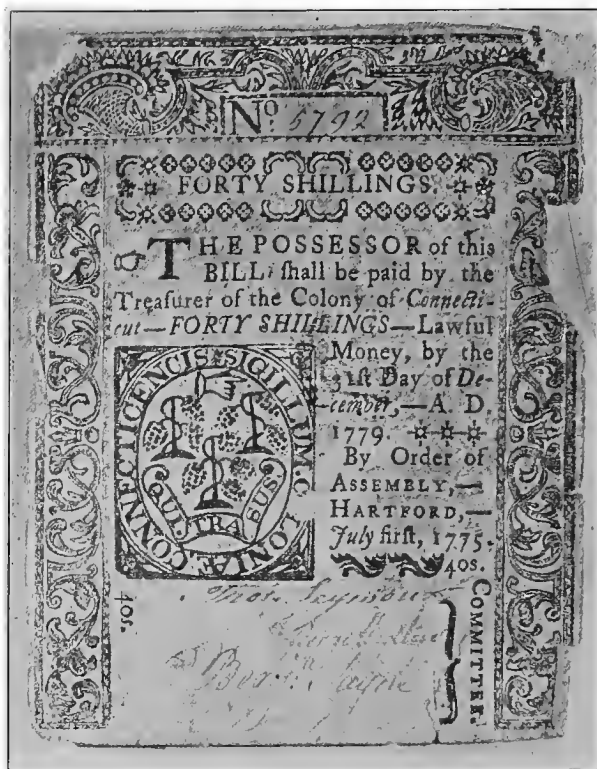 No. 5792
FORTY SHILLINGS
THE POSSESSOR of this
BILL, ſhall be paid by the
Treaſurer of the Colony of Connecti-
cut—FORTY SHILLINGS—Lawful
Money, by the
31ſt Day of De-
cember,—A. D.
1779.
By Order of
ASSEMBLY,—
HARTFORD,—
July firſt, 1775.
40s.
SIGILLUM COLONIÆ CONNECTICENCIS
QUI TRA SUS
40s.
Thos. Seymour
Benn. Payne
COMMITTEE.